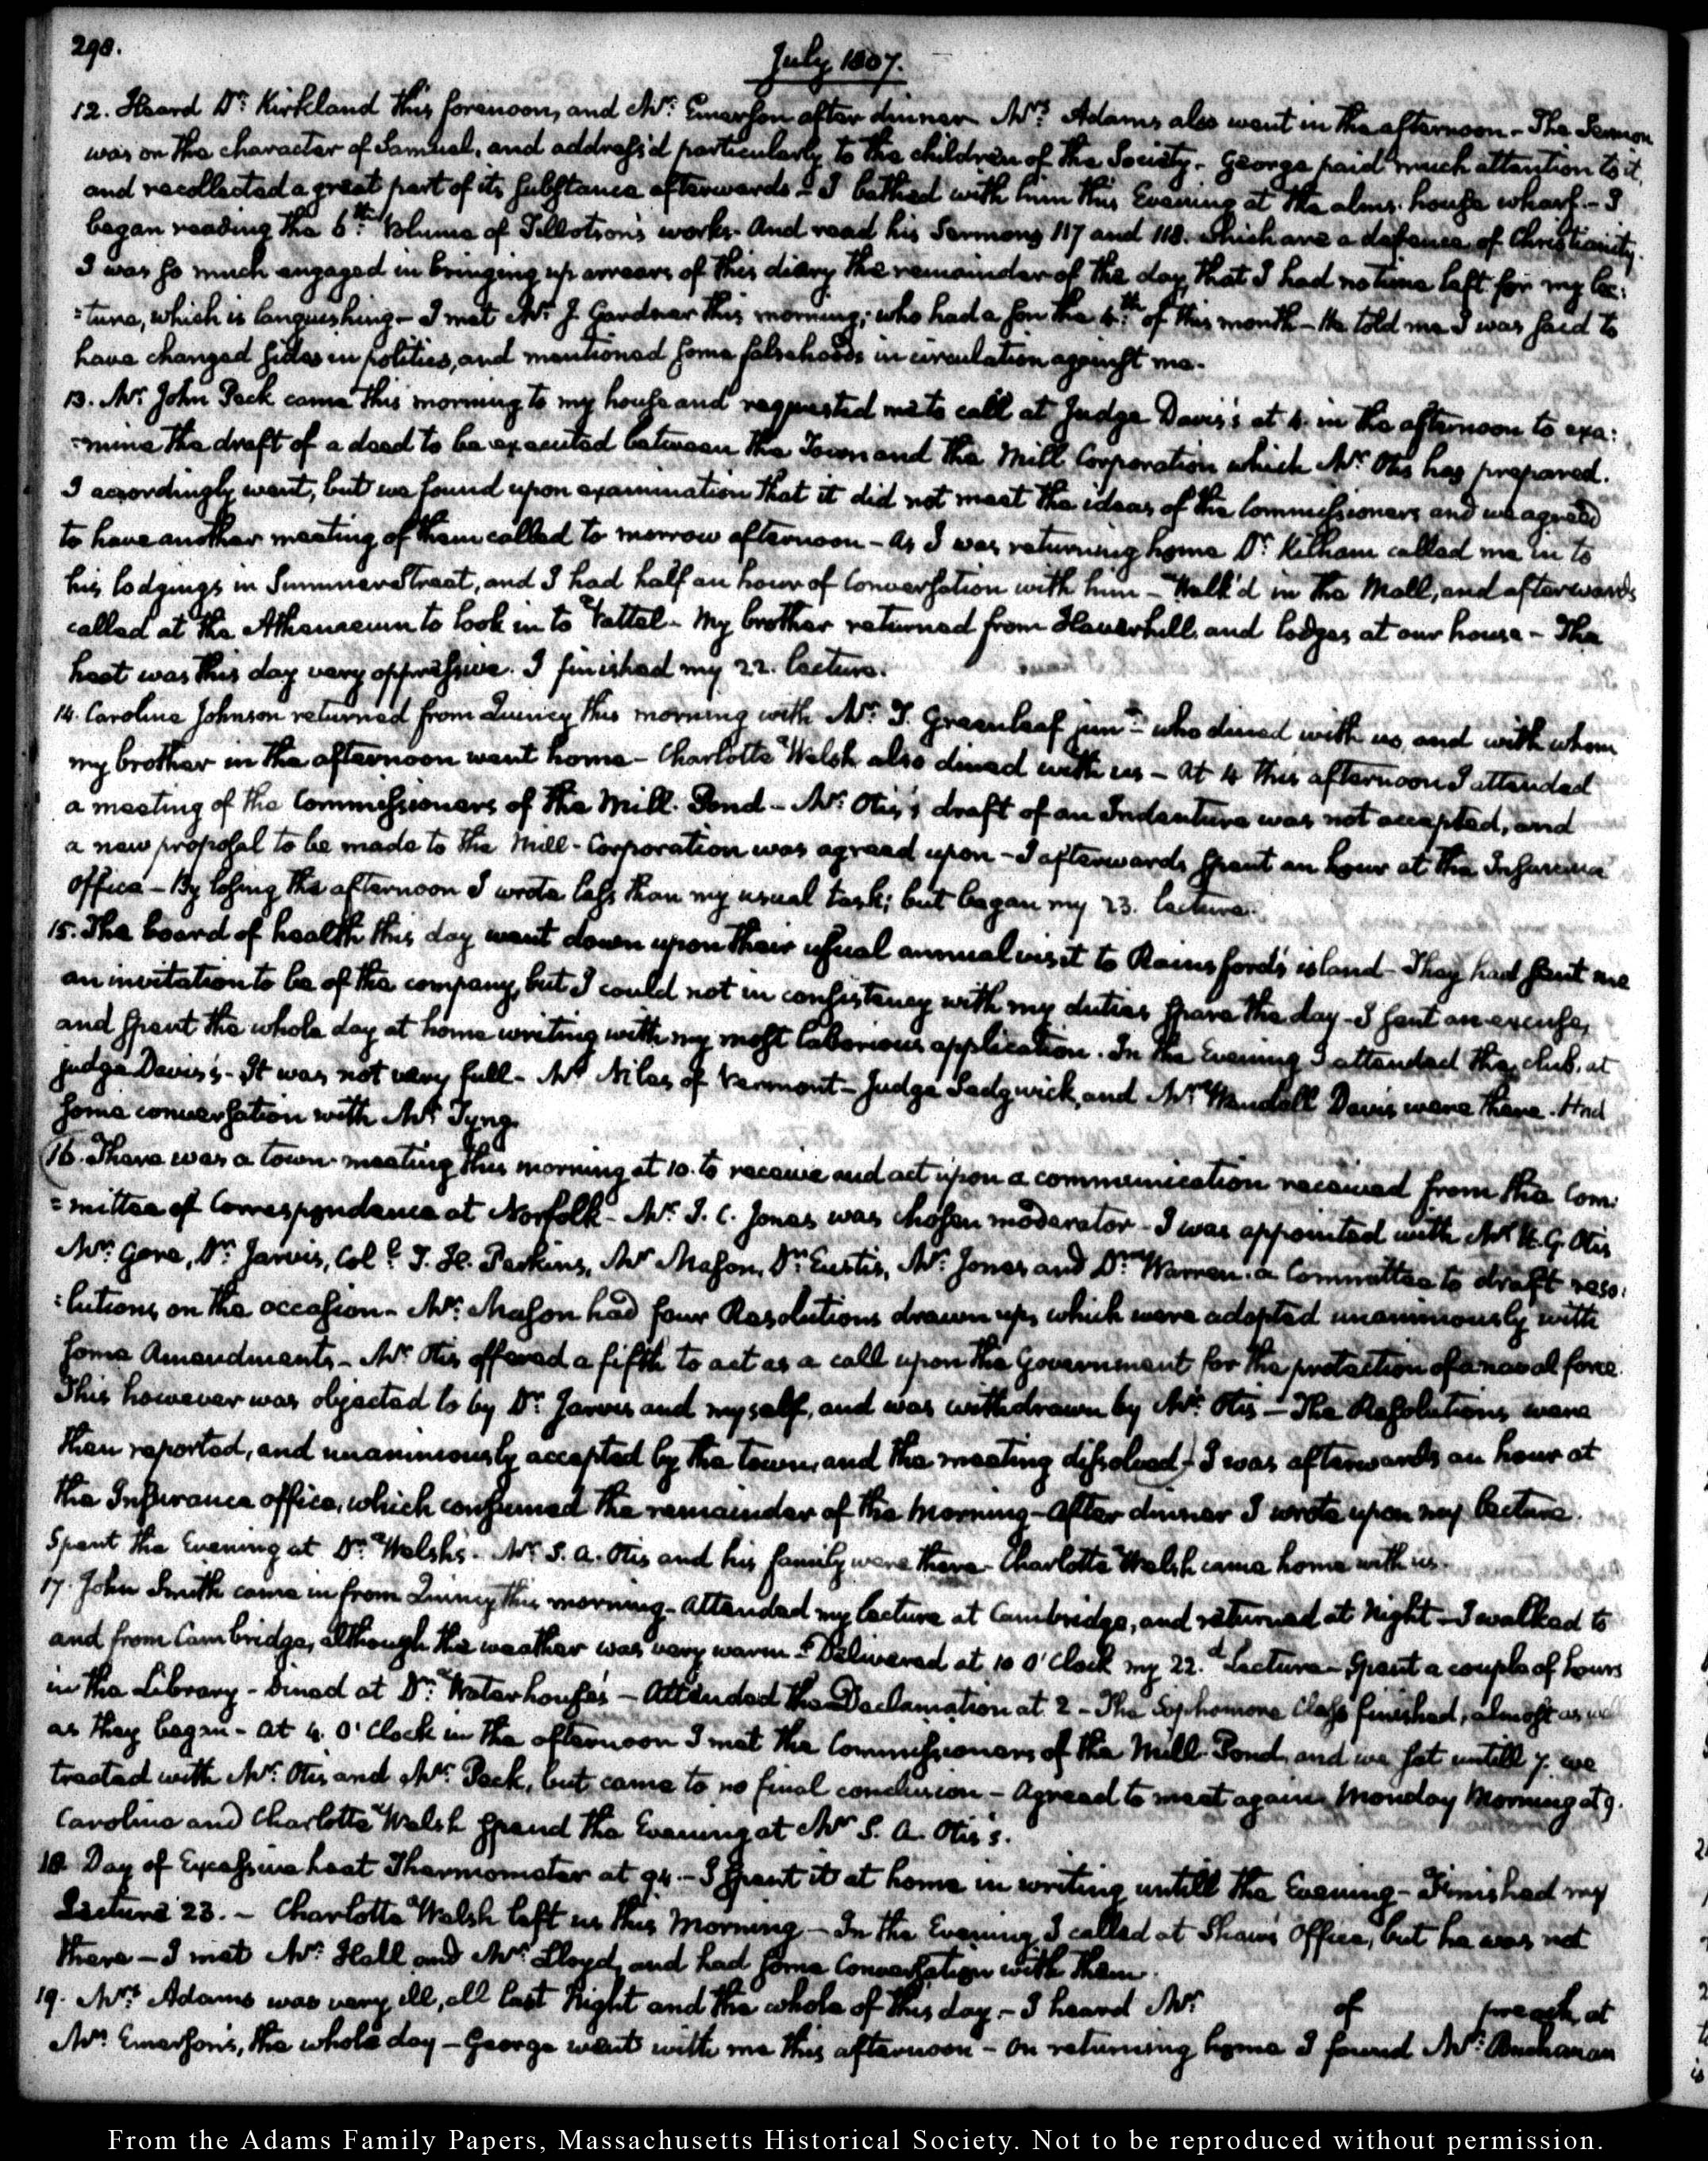 298.
July 1807.
12. Heard Dr. Kirkland this forenoon, and Mr. Emerson after dinner. Mrs. Adams also went in the afternoon – The Sermon
was on the character of Samuel, and address'd particularly to the children of the Society – George paid much attention to it,
and recollected a great part of its substance afterwards – I bathed with him this Evening at the alms-house wharf – I
began reading the 6th. Volume of Tillotson's works. And read his Sermons 117 and 118. which are a defence of Christianity.
I was so much engaged in bringing up arrears of this diary the remainder of the day, that I had no time left for my lec:
:ture, which is languishing – I met Mr. J. Gardner this morning; who had a son the 4th. of this month – He told me I was said to
have changed sides in politics, and mentioned some falsehoods in circulation against me.
13. Mr. John Peck came this morning to my house and requested me to call at Judge Davis's at 4. in the afternoon to exa:
:mine the draft of a deed to be executed between the Town and the Mill Corporation which Mr. Otis has prepared.
I accordingly went, but we found upon examination that it did not meet the ideas of the Commissioners and we agreed
to have another meeting of them called to morrow afternoon – As I was returning home Dr. Kilham called me in to
his lodgings in Summer Street, and I had half an hour of Conversation with him – Walk'd in the Mall, and afterwards
called at the Athenaeum to look in to Vattel – My brother returned from Haverhill, and lodges at our house – The
heat was this day very oppressive. I finished my 22. lecture.
14. Caroline Johnson returned from Quincy this morning with Mr. T. Greenleaf junr. who dined with us, and with whom
my brother in the afternoon went home – Charlotte Welsh also dined with us – At 4 this afternoon I attended
a meeting of the Commissioners of the Mill-Pond – Mr. Otis's draft of an Indenture was not accepted, and
a new proposal to be made to the Mill-Corporation was agreed upon – I afterwards spent an hour at the Insurance
office – By losing the afternoon I wrote less than my usual task; but began my 23. lecture.
15. The board of health this day went down upon their usual annual visit to Rainsford's island – They had sent me
an invitation to be of the company, but I could not in consistency with my duties spare the day – I sent an excuse,
and spent the whole day at home writing with my most laborious application. In the Evening I attended the club, at
judge Davis's – It was not very full – Mr Niles of Vermont – Judge Sedgwick, and Mr Wendell Davis were there. Had
some conversation with Mr. Tyng.
16. There was a town-meeting this morning at 10. to receive and act upon a communication received from the Com:
:mittee of Correspondence at Norfolk – Mr. J. C. Jones was chosen moderator – I was appointed with Mr H. G. Otis
Mr. Gore, Dr. Jarvis, Coll. T. H. Perkins, Mr Mason, Dr. Eustis, Mr. Jones and Dr. Warren, a Committee to draft reso:
:lutions on the occasion – Mr. Mason had four Resolutions drawn up, which were adopted unanimously with
some Amendments – Mr. Otis offered a fifth to act as a call upon the Government for the protection of a naval force.
This however was objected to by Dr. Jarvis and myself, and was withdrawn by Mr. Otis – The Resolutions were
then reported, and unanimously accepted by the town, and the meeting dissolved) I was afterwards an hour at
the Insurance office, which consumed the remainder of the morning – After dinner I wrote upon my lecture.
Spent the Evening at Dr. Welsh's. Mr. S. A. Otis and his family were there – Charlotte Welsh came home with us.
17. John Smith came in from Quincy this morning – Attended my lecture at Cambridge, and returned at Night – I walked to
and from Cambridge, although the weather was very warm – Delivered at 10 O'Clock my 22.d Lecture – Spent a couple of hours
in the Library – Dined at Dr. Waterhouse's – Attended the Declamation at 2 – The Sophomore Class finished, almost as well
as they began – At 4. O'Clock in the afternoon I met the Commissioners of the Mill-Pond, and we sat untill 7. we
treated with Mr. Otis and Mr. Peck, but came to no final conclusion – Agreed to meet again Monday Morning at 9.
Caroline and Charlotte Welsh spend the Evening at Mr S. A. Otis's.
18. Day of Excessive heat Thermometer at 94. – I spent it at home in writing untill the Evening – Finished my
Lecture 23. – Charlotte Welsh left us this Morning – In the Evening I called at Shaw's Office, but he was not
there – I met Mr. Hall and Mr. Lloyd, and had some Conversation with them.
19. Mrs. Adams was very ill, all last Night and the whole of this day – I heard Mr. of preach at
Mr. Emerson's, the whole day – George went with me this afternoon – On returning home I found Mr. Buchanan
From the Adams Family Papers, Massachusetts Historical Society. Not to be reproduced without permission.